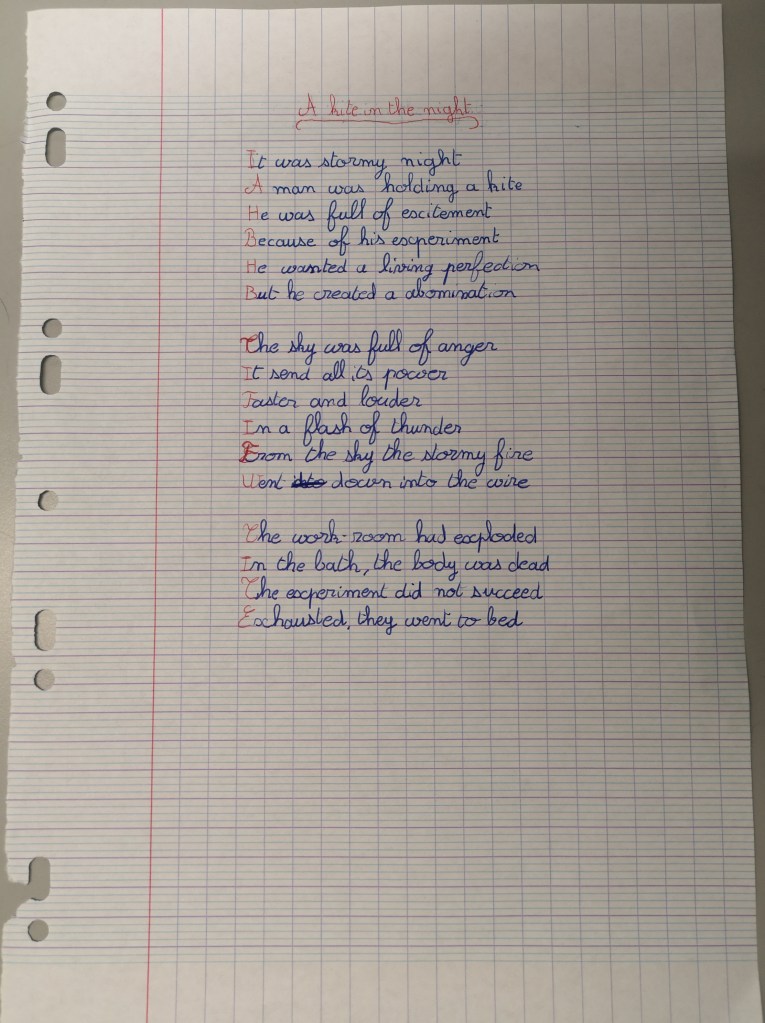 A kite in the night
It was stormy night
A man was holding a kite
He was full of excitement
Because of his experiment
He wanted a living perfection
But he created a abomination
The sky was full of anger
It send all its power
Faster and louder
In a flash of thunder
From the sky the stormy fire
Went down into the wire
The work-room had exploded
In the bath, the body was dead
The experiment did not succeed
Exhausted, they went to bed